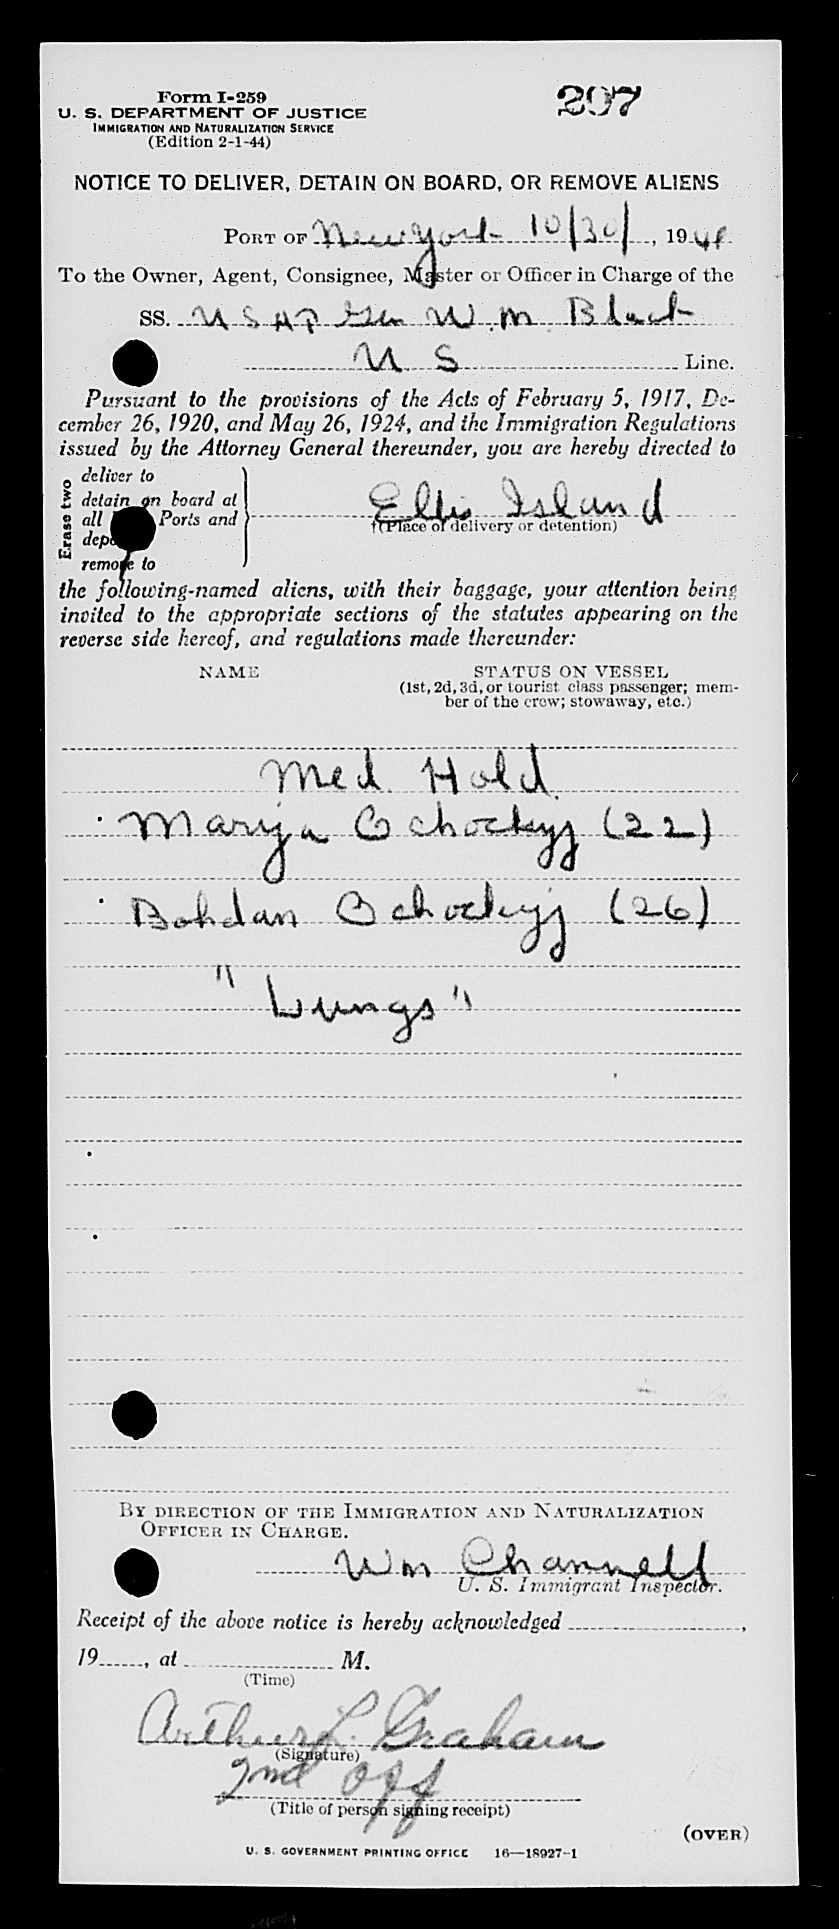 Form I-259
U. S. DEPARTMENT OF JUSTICE
IMMIGRATION AND NATURALIZATION SERVICE
(Edition 2-1-44)
207
NOTICE TO DELIVER, DETAIN ON BOARD, OR REMOVE ALIENS
PORT OF New York 10/30/, 1948
To the Owner, Agent, Consignee, Master or Officer in Charge of the
SS. USAT Gen W.M. Black
U S Line.
Pursuant to the provisions of the Acts of February 5, 1917, De-
cember 26, 1920, and May 26, 1924, and the Immigration Regulations
issued by the Attorney General thereunder, you are hereby directed to
Erase two
deliver to
detain on board at
all Ports and
remove to
Ellis Island
(Place of delivery or detention)
the following-named aliens, with their baggage, your attention being
invited to the appropriate sections of the statutes appearing on the
reverse side hereof, and regulations made thereunder:
NAME STATUS ON VESSEL
(1st, 2d, 3d, or tourist class passenger; mem-
ber of the crew; stowaway, etc.)
Med. Hold.
Marija Ochockyj (22)
Bohdan Ochockyj (26)
"Lungs"
BY DIRECTION OF THE IMMIGRATION AND NATURALIZATION
OFFICER IN CHARGE.
Wm Channell
U. S. Immigrant Inspector.
Receipt of the above notice is hereby acknowledged ,
19 , at M.
(Time)
Arthur L. Graham
(Signature)
2nd Off
(Title of person signing receipt)
(OVER)
U. S. GOVERNMENT PRINTING OFFICE 16—18927-1